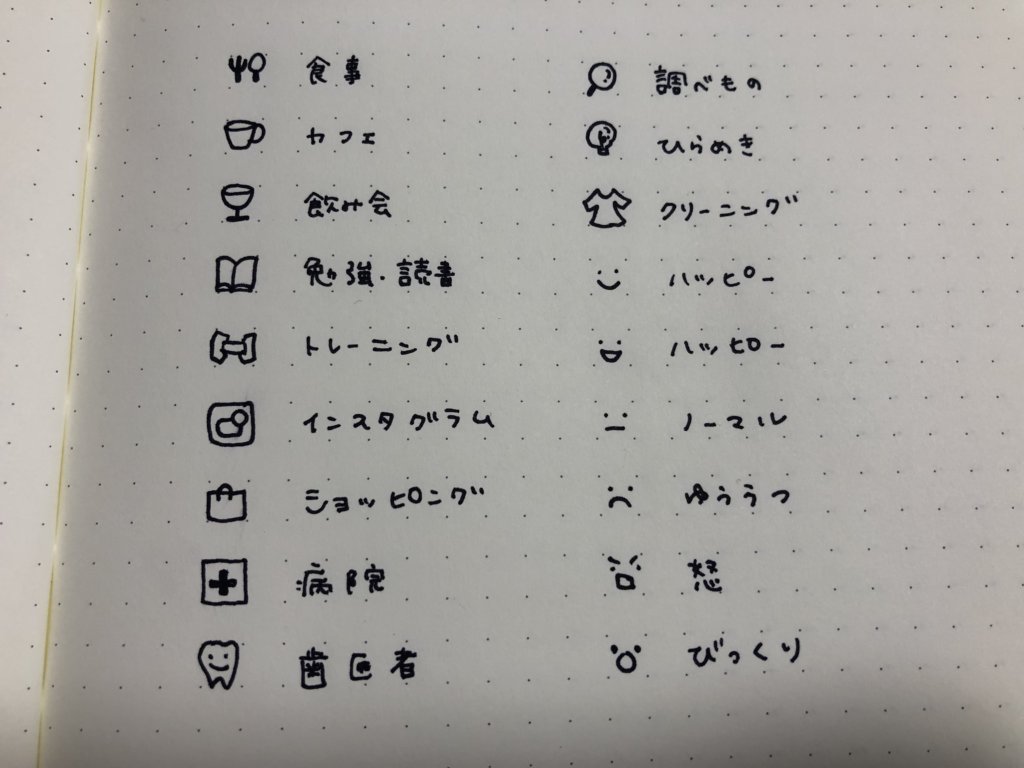 食事
カフェ
飲み会
勉強・読書
トレーニング
インスタグラム
ショッピング
病院
歯医者
調べもの
ひらめき
クリーニング
ハッピー
ハッピー
ノーマル
ゆううつ
怒
びっくり